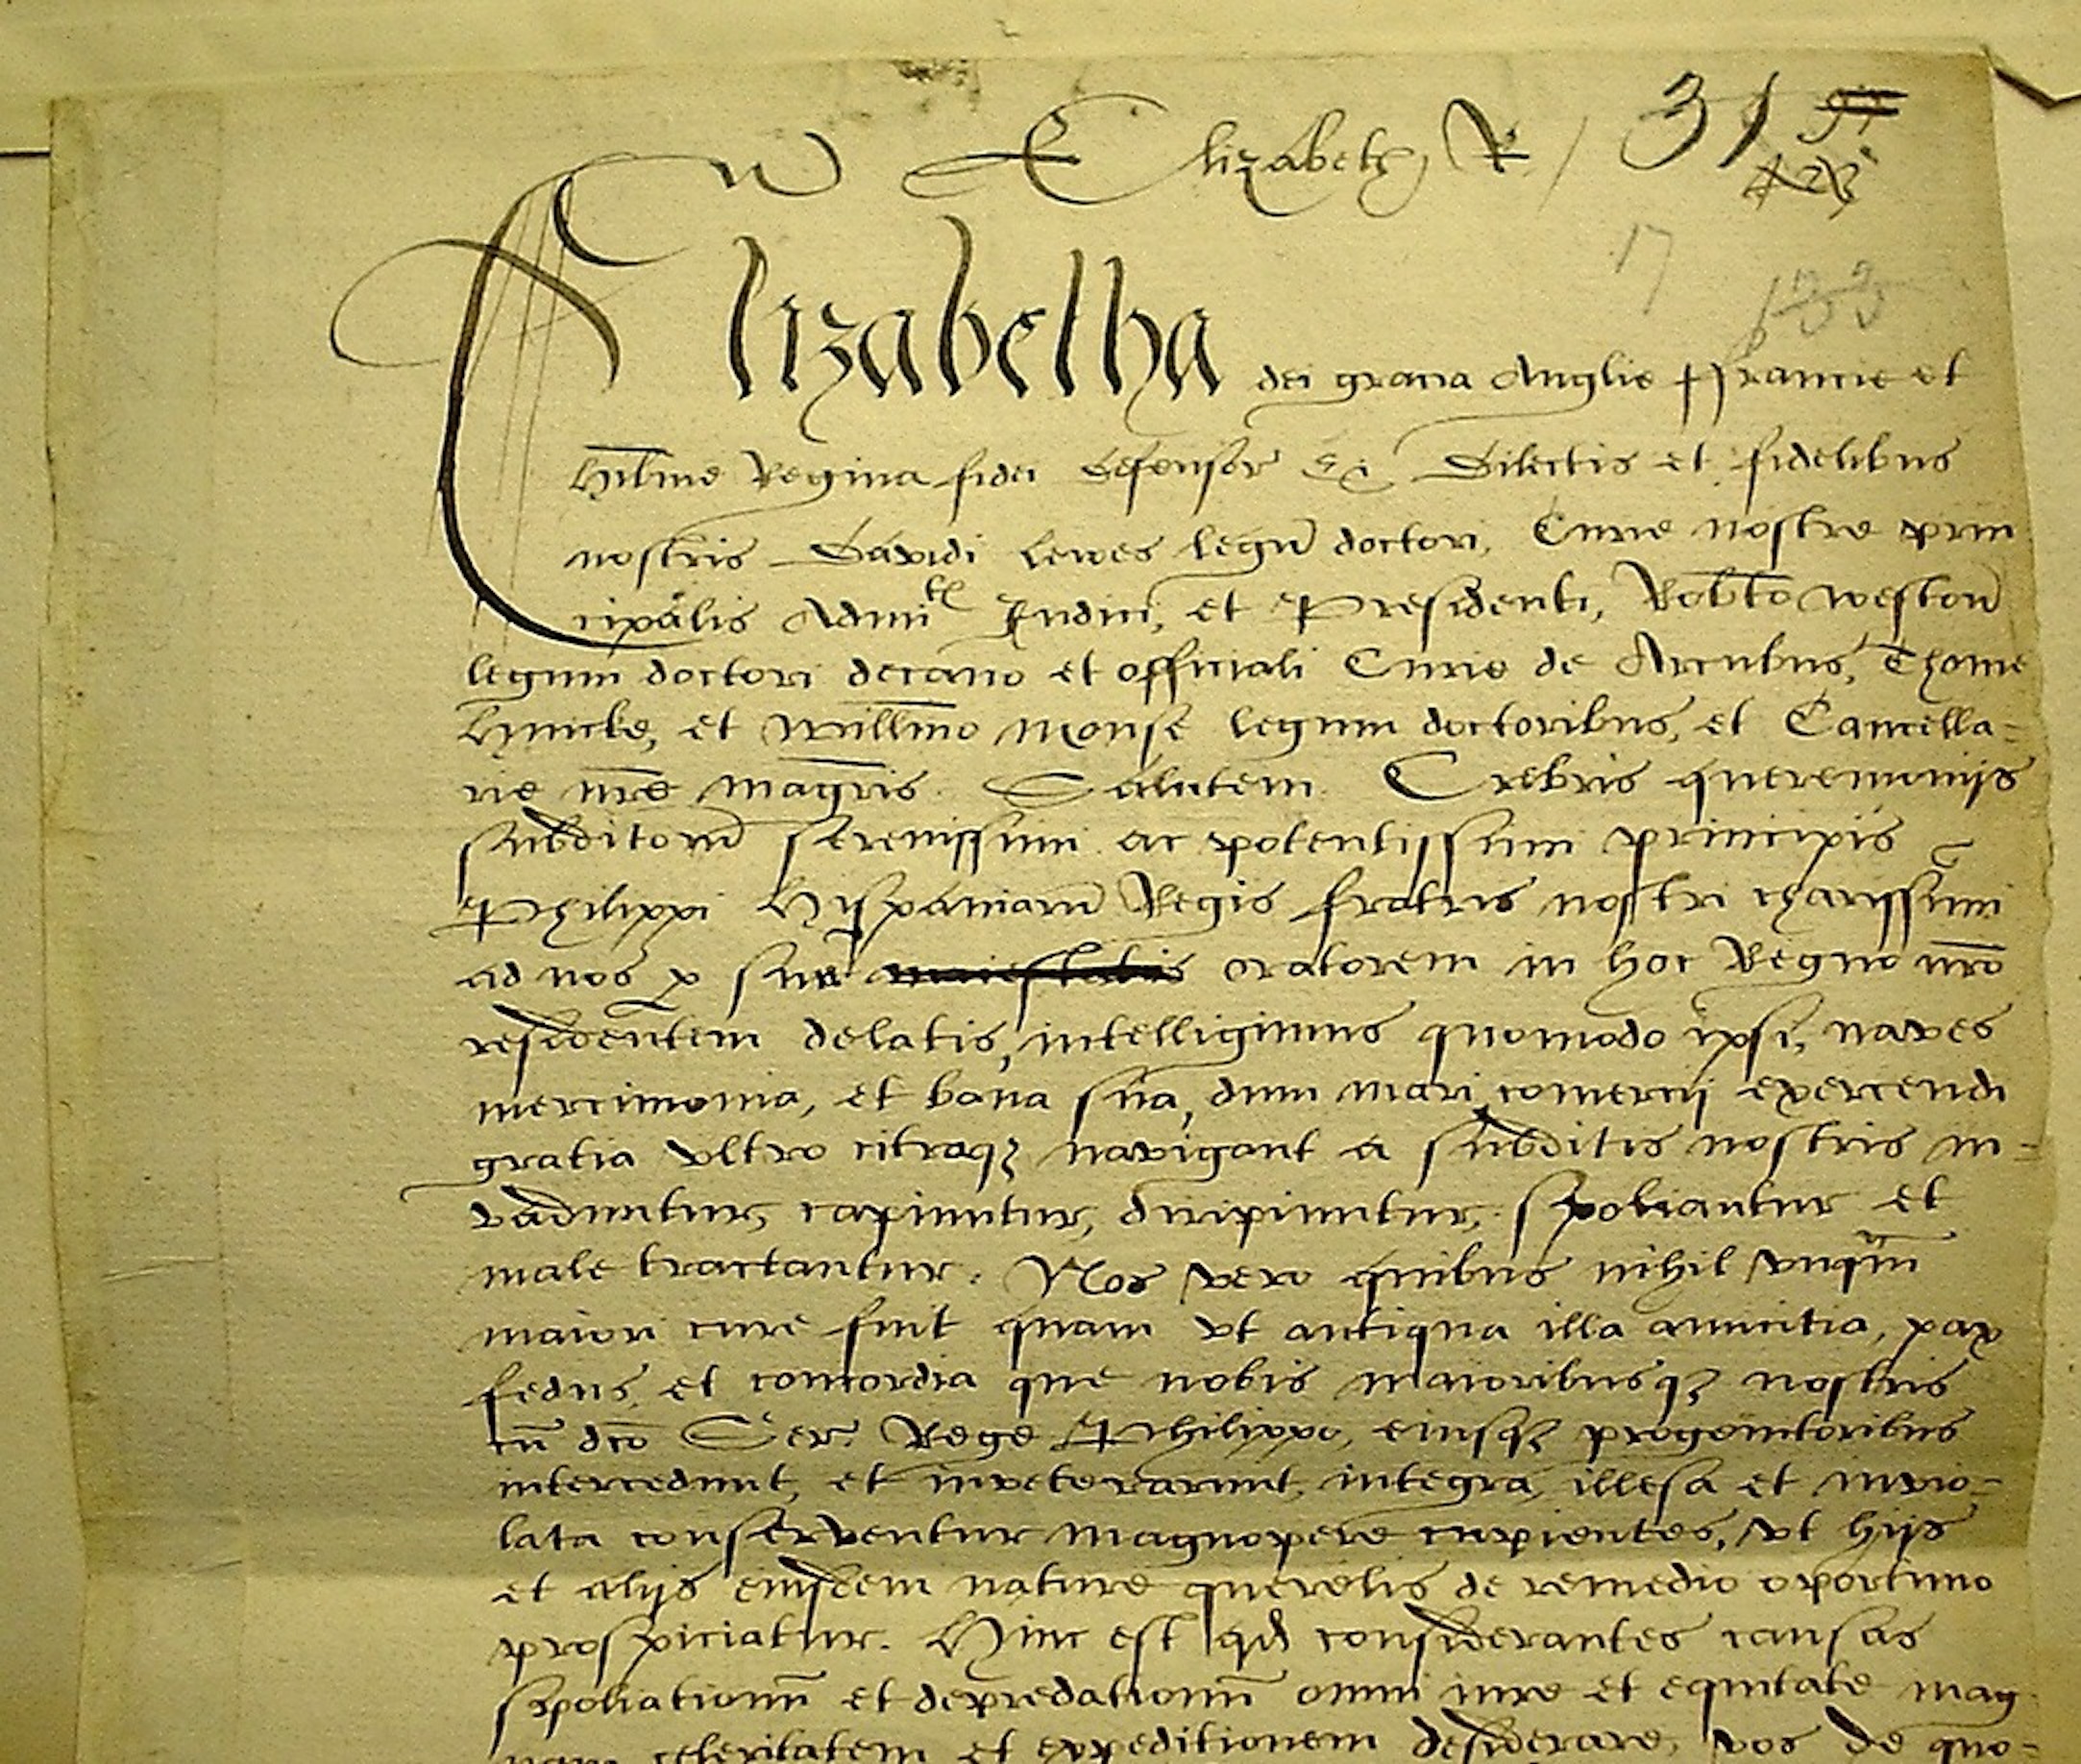 Elizabeth R / 31
17
133
Elizabetha dei gratia Anglie ffrancie et
hib̄nie Regina fidei defensor &c Dilectis et fidelibus
nostris Davidi Lewes legū doctori, Curie nostre prin
cipalis Admitl Iudici, et Presidenti, Rob̄to Weston
legum doctori decano et officiali Curie de Arcubus, Thome
Huicke, et Will̄mo Mouse legum doctoribus, et Cancella=
rie nr̄e magr̄is. Salutem. Crebris queremonijs
subditorū serenissimi ac potentissimi principis
Philippi Hispaniarū Regis fratris nostri charissimi
ad nos p suū maiestatis oratorem in hoc Regno nr̄o
residentem delatis, intelligimus quomodo ipsi, naves
mercimonia, et bona sua, dum mari comercij exercendi
gratia ultro citroqȝ navigant a subditis nostris in=
vaduntur, capiuntur, diripiuntur, spoliantur et
male tractantur. Nos vero quibus nihil unqm̄
maiori cure fuit quam vt antiqua illa amicitia, pax
fedus, et concordia que nobis maioribusqȝ nostris
cū dc̄o Ser. Rege Philippo, eiusqȝ progenitoribus
intercedunt, et inveterarunt, integra, illesa et invio=
lata conserventur magnopere cupientes, vt hijs
et alijs eiusdem nature querelis de remedio oportuno
prospiciatur. Hinc est qd considerantes causas
spoliationū et depredationū omni iure et equitate mag
nam celeritatem et expeditionem desiderare, vos de quo=